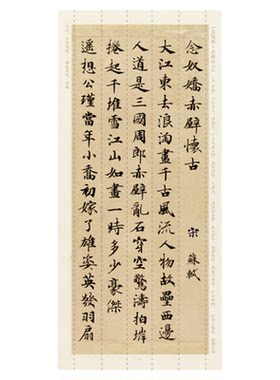 念奴嬌赤壁懷古 宋 蘇軾
大江東去浪淘盡千古風流人物故壘西邊
人道是三國周郎赤壁亂石穿空驚濤拍岸
捲起千堆雪江山如畫一時多少豪傑
遥想公瑾當年小喬初嫁了雄姿英發羽扇